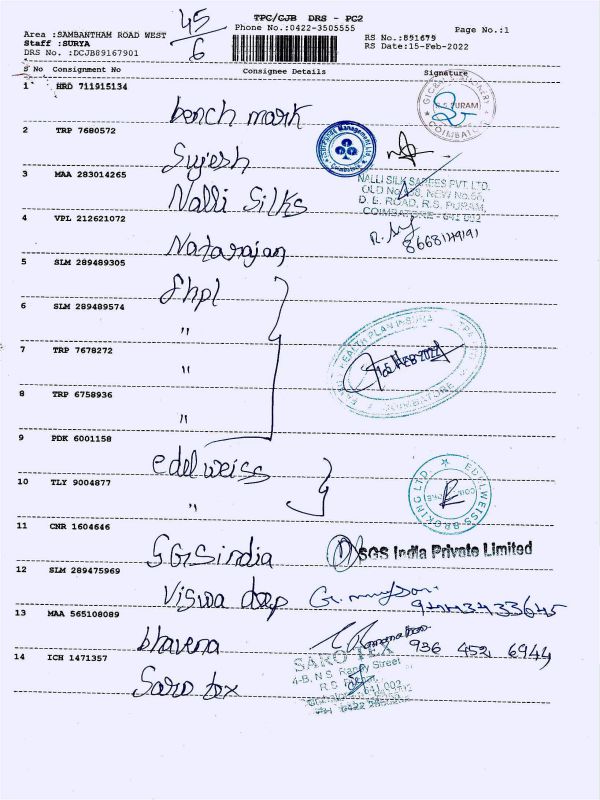 45
6
TPC/CJB DRS - PC2
Phone No.:0422-3505555
Page No.:1
Area :SAMBANTHAM ROAD WEST
Staff :SURYA
DRS No. :DCJB89167901
RS No.:891679
RS Date:15-Feb-2022
S No Consignment No Consignee Details Signature
1 HRD 711915134
bench mark
R.S.PURAM
COIMBATORE
2 TRP 7680572
Sujesh
3 MAA 283014265
Nalli Silks
NALLI SILK SAREES PVT. LTD.
D. B. ROAD, R.S. PURAM,
COIMBATORE - 641 002
4 VPL 212621072
8668149191
Natarajan
5 SLM 289489305
fhpl
6 SLM 289489574
"
HEALTH PLAN INSURA
15 FEB 2022
COIMBATORE
7 TRP 7678272
"
8 TRP 6758936
"
9 PDK 6001158
edelweiss
EDELWEISS BROKING LTD
10 TLY 9004877
"
11 CNR 1604646
SGS india
SGS India Private Limited
12 SLM 289475969
Viswa deep
13 MAA 565108089
bhavena
936 452 6944
14 ICH 1471357
SARO TEX
4-B, N.S. Street
R.S.
Saro tex